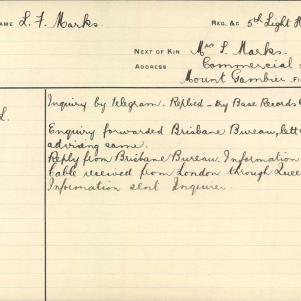 NAME L. F. Marks. REG. &c 5th Light H
NEXT OF KIN Mrs S. Marks.
ADDRESS Commercial
Mount Gambier
Inquiry by telegram. Replied - try Base Records
Enquiry forwarded Brisbane Bureau, lett
advising same.
Reply from Brisbane Bureau. Information
Cable received from London through Quee
Information sent Inquirer.